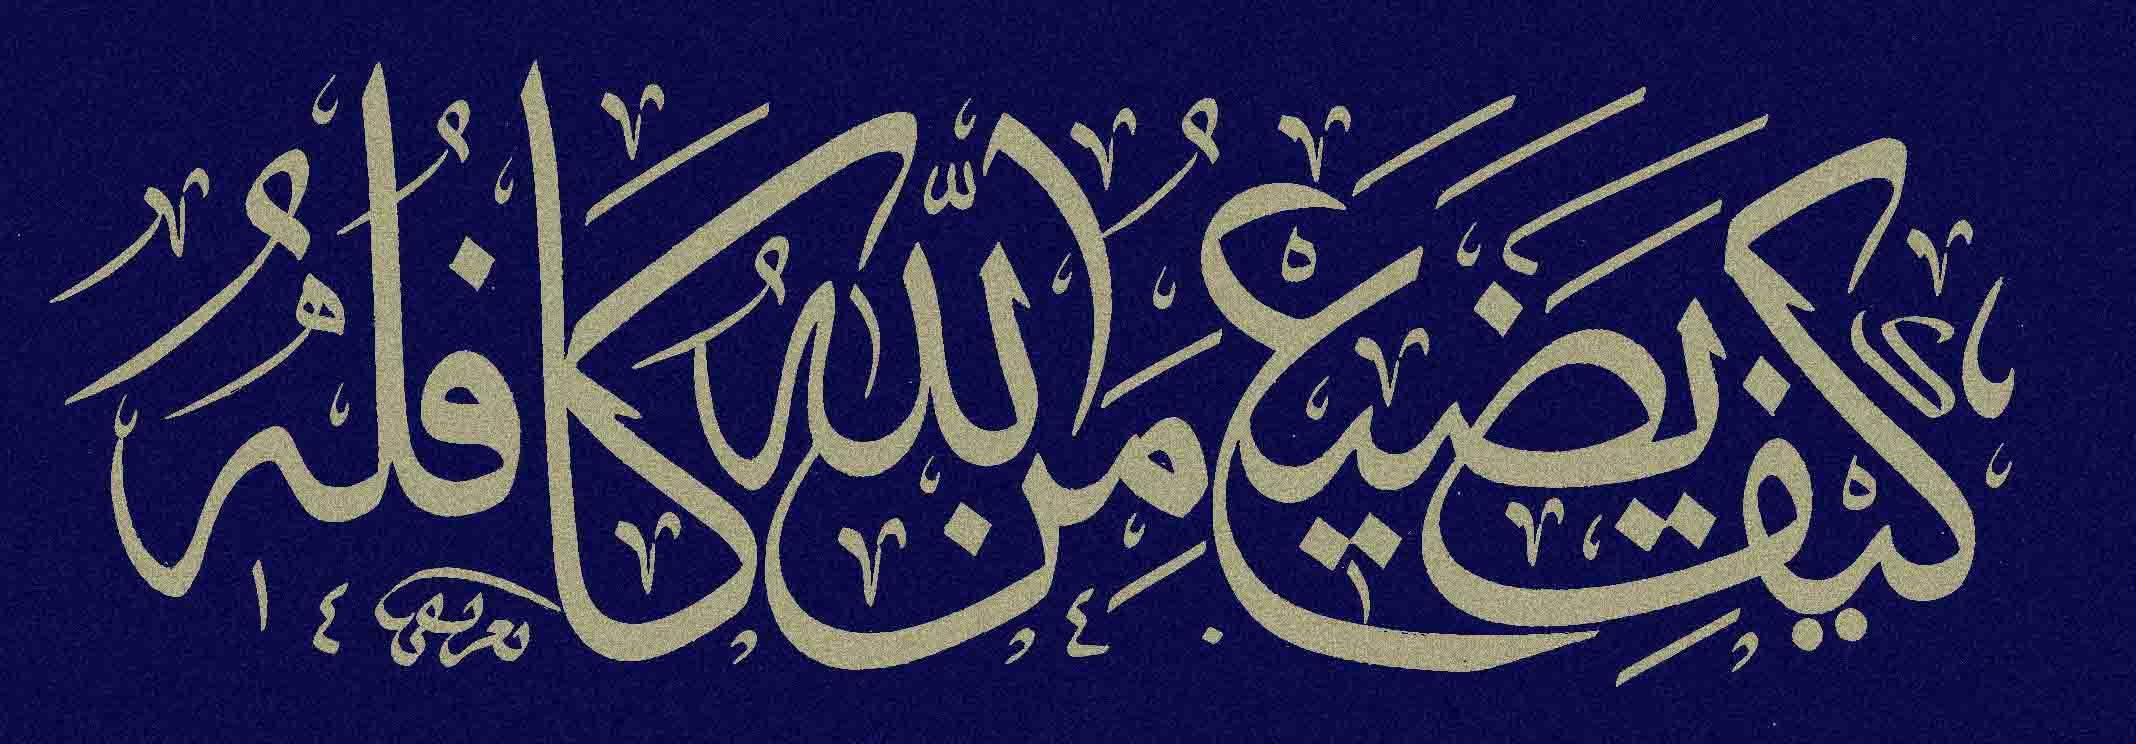 كَيْفَ يَضِيعُ مَنِ اللَّهُ كَافِلُهُ